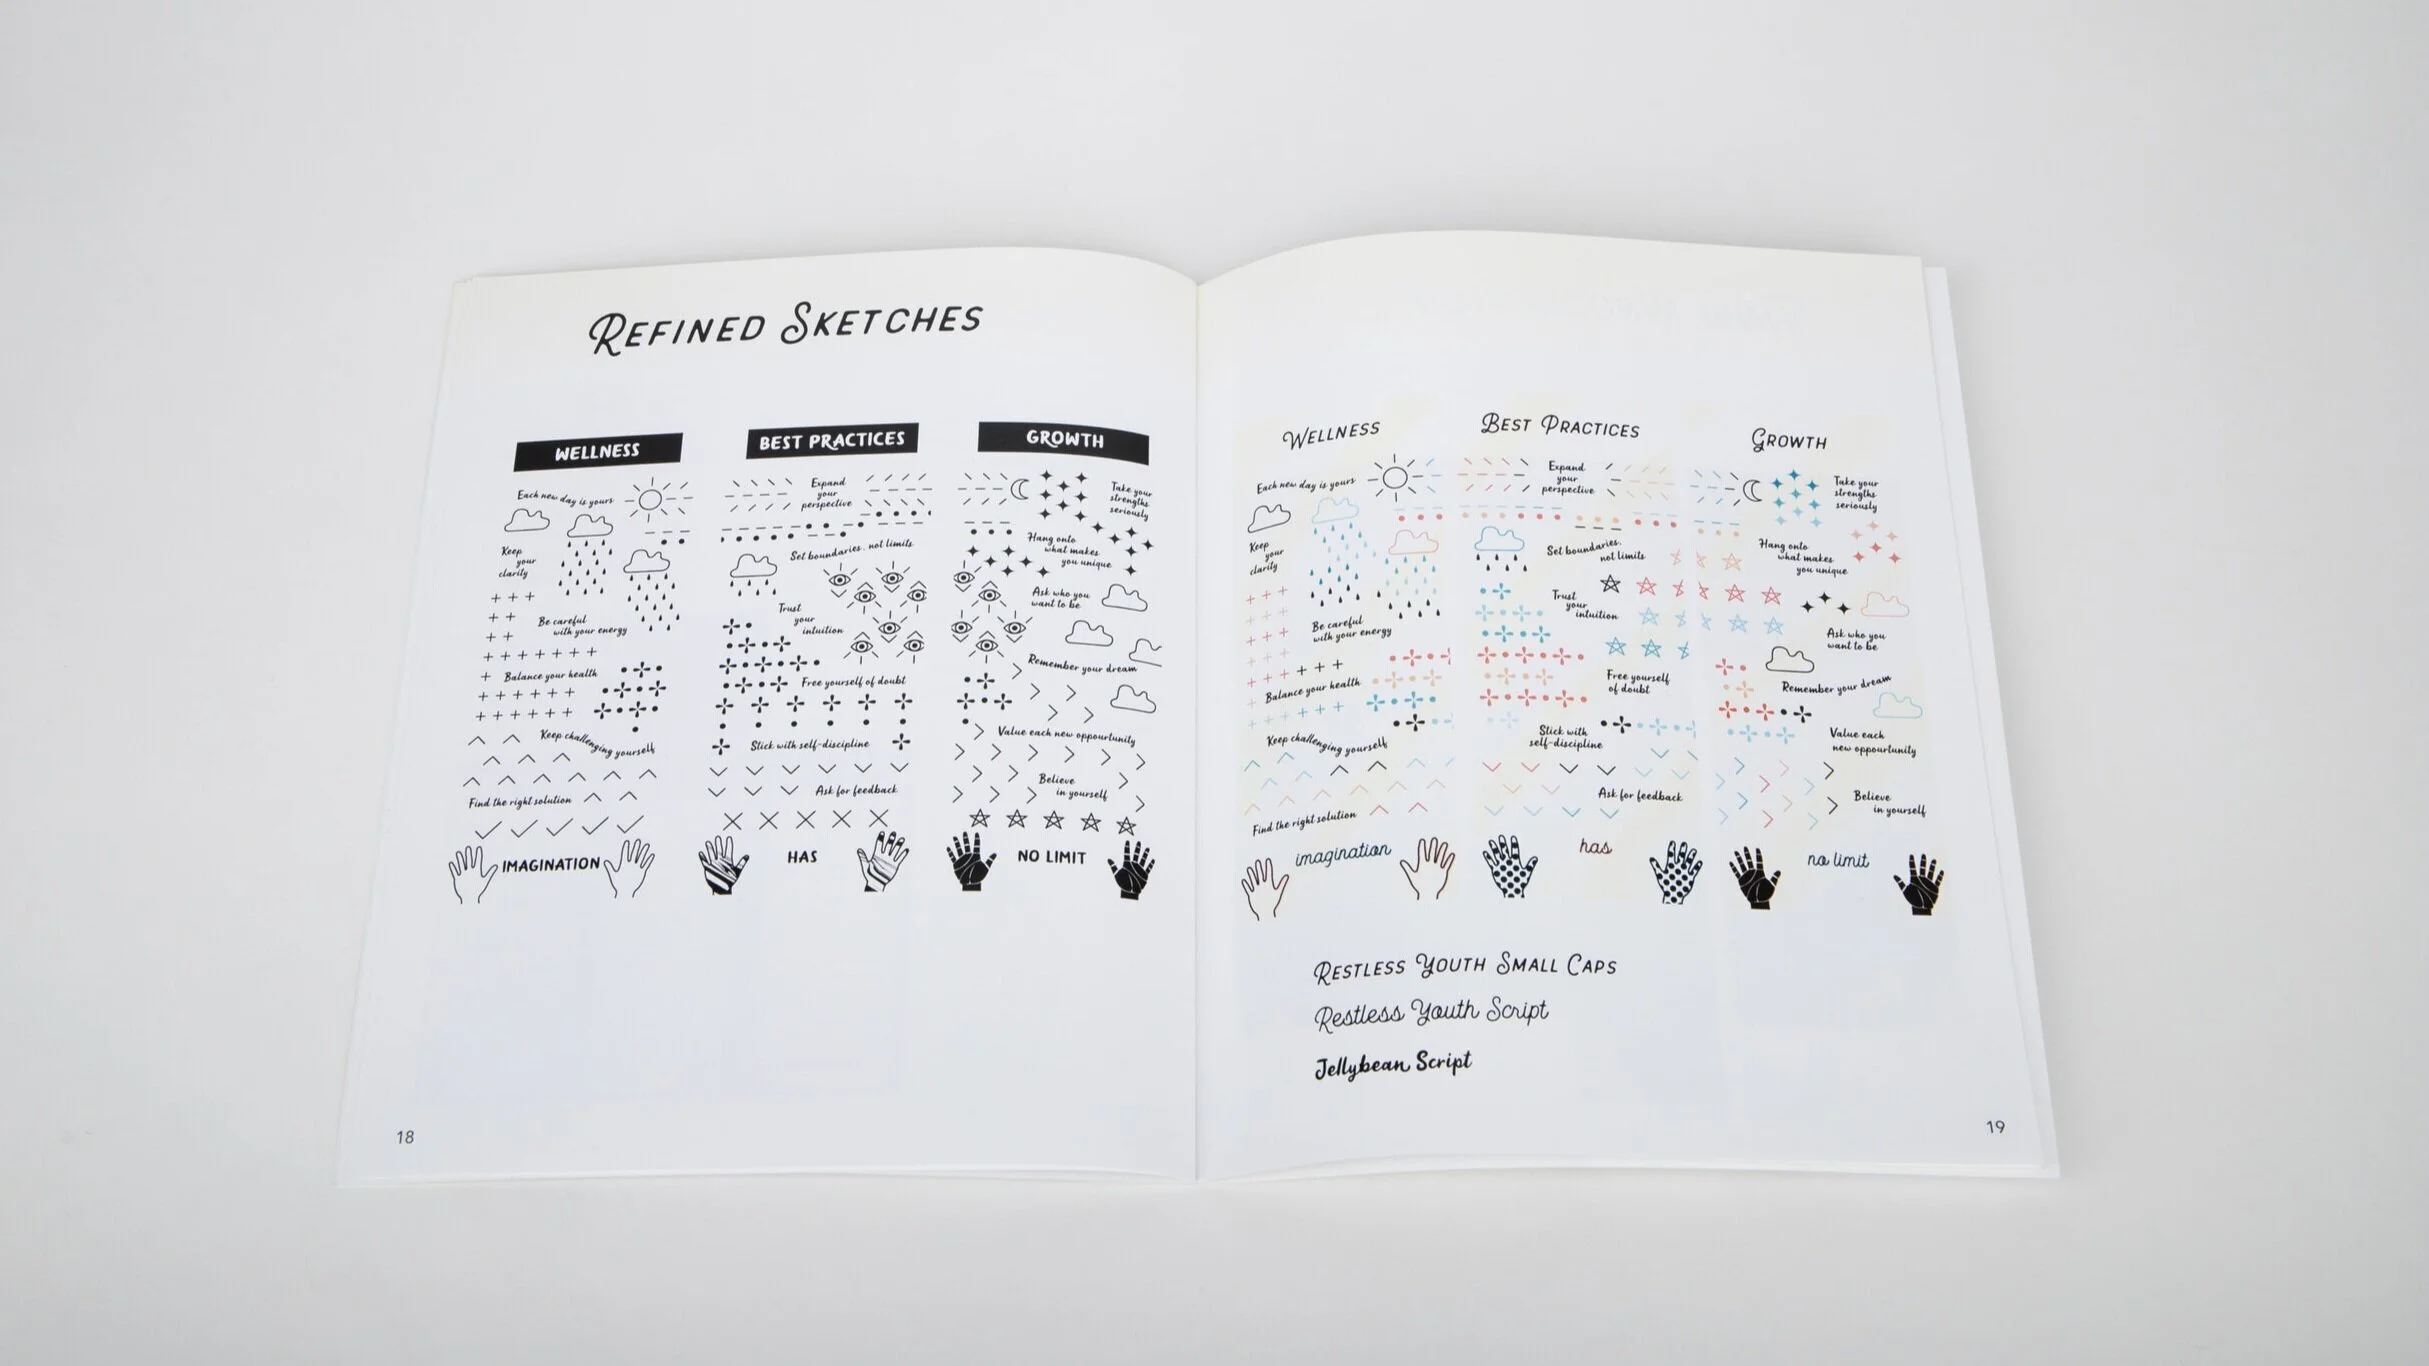 REFINED SKETCHES
WELLNESS
Each new day is yours
Keep
your
clarity
Be careful
with your energy
Balance your health
Keep challenging yourself
Find the right solution
IMAGINATION
BEST PRACTICES
Expand
your
perspective
Set boundaries, not limits
Trust
your
intuition
Free yourself of doubt
Stick with self-discipline
Ask for feedback
HAS
GROWTH
Take your
strengths
seriously
Hang onto
what makes
you unique
Ask who you
want to be
Remember your dream
Value each new oppourtunity
Believe
in yourself
NO LIMIT
18
WELLNESS
Each new day is yours
Keep
your
clarity
Be careful
with your energy
Balance your health
Keep challenging yourself
Find the right solution
imagination
BEST PRACTICES
Expand
your
perspective
Set boundaries,
not limits
Trust
your
intuition
Free yourself
of doubt
Stick with
self-discipline
Ask for feedback
has
GROWTH
Take your
strengths
seriously
Hang onto
what makes
you unique
Ask who you
want to be
Remember your dream
Value each
new oppourtunity
Believe
in yourself
no limit
RESTLESS YOUTH SMALL CAPS
Restless Youth Script
Jellybean Script
19